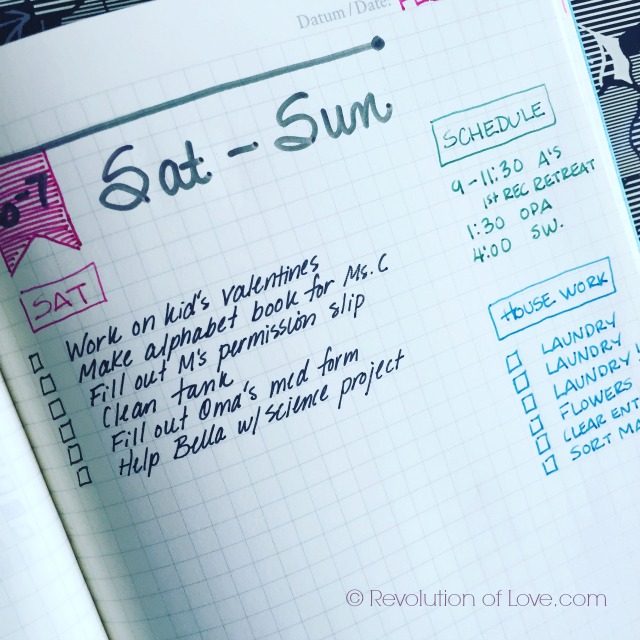 Datum / Date:
6-7
Sat - Sun
SAT
Work on kid's valentines
Make alphabet book for Ms. C
Fill out M's permission slip
Clean tank
Fill out Oma's med form
Help Bella w/ science project
SCHEDULE
9-11:30 A's
1st REC RETREAT
1:30 OPA
4:00 SW.
HOUSE WORK
LAUNDRY
LAUNDRY
LAUNDRY
FLOWERS
CLEAR
SORT
© Revolution of Love.com